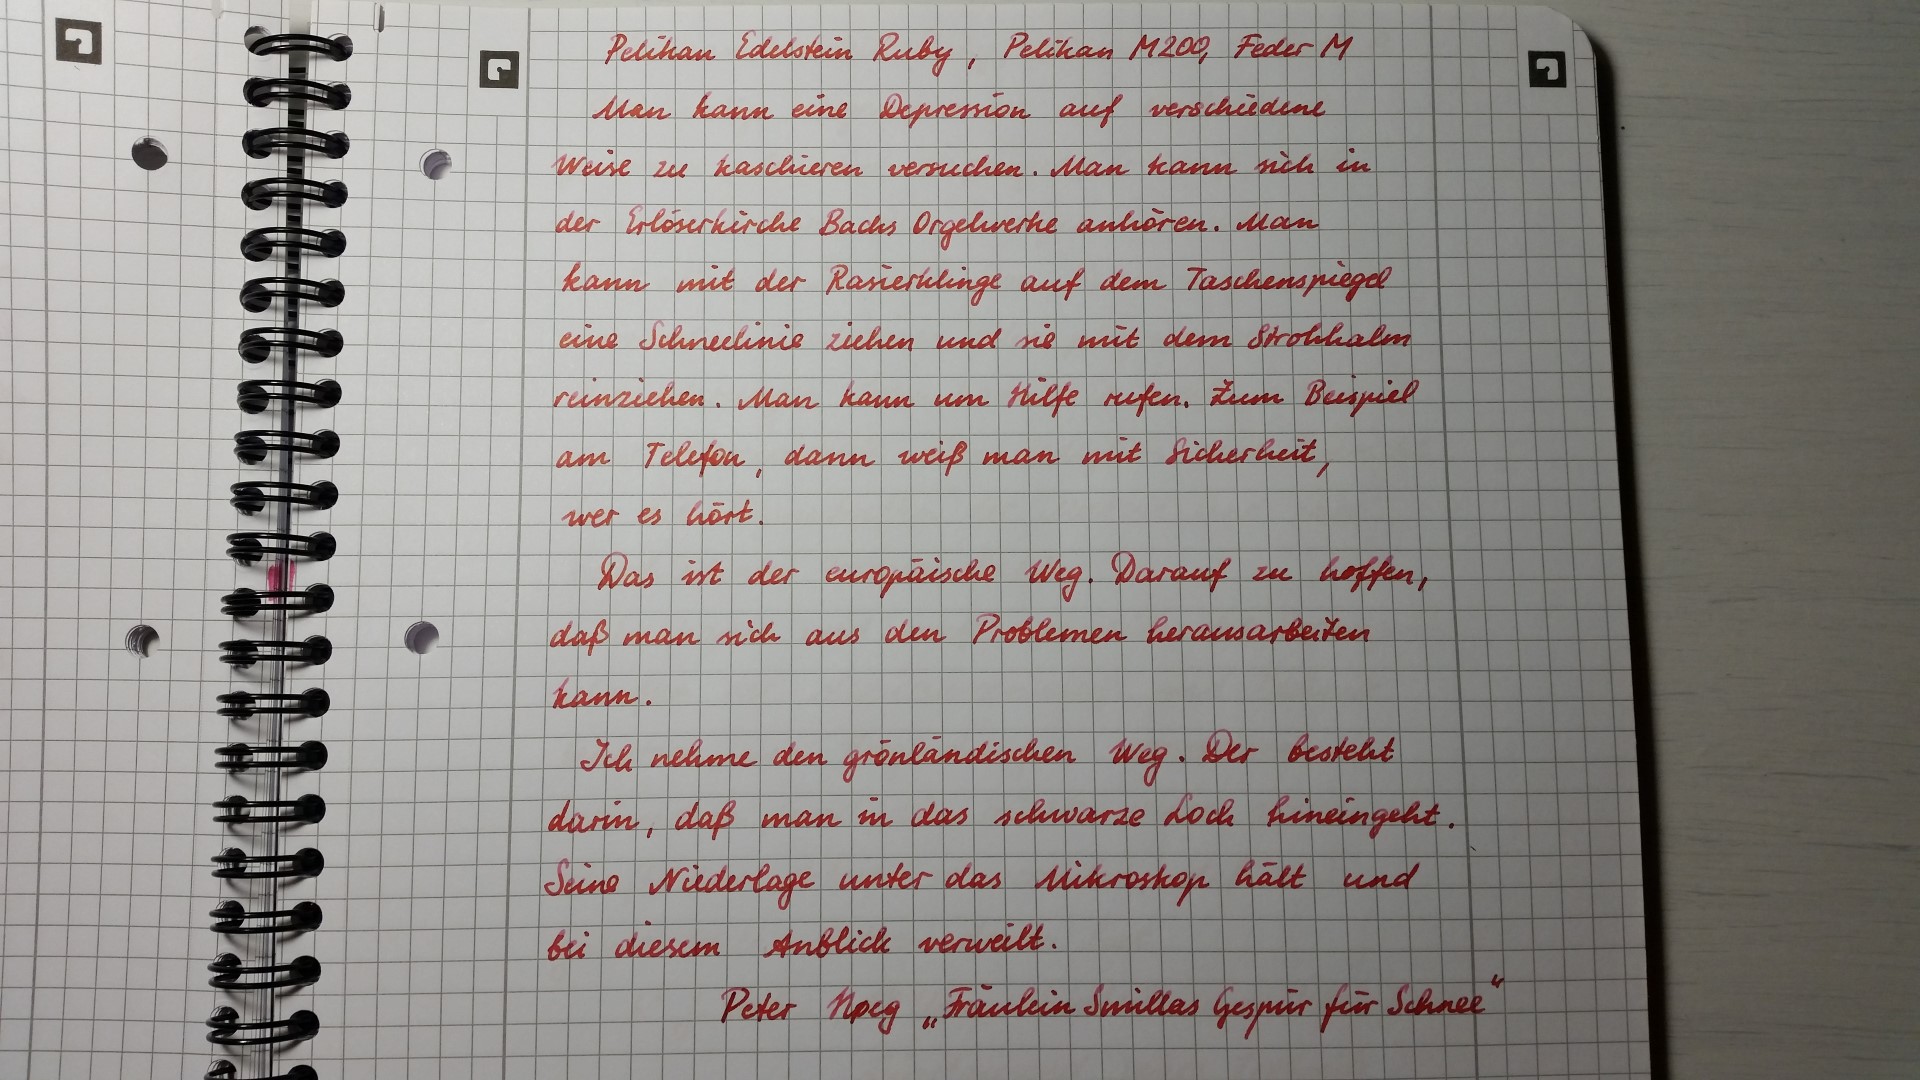 Pelikan Edelstein Ruby, Pelikan M200, Feder M
Man kann eine Depression auf verschiedene
Weise zu kaschieren versuchen. Man kann sich in
der Erlöserkirche Bachs Orgelwerke anhören. Man
kann mit der Rasierklinge auf dem Taschenspiegel
eine Schneelinie ziehen und sie mit dem Strohhalm
reinziehen. Man kann um Hilfe rufen. Zum Beispiel
am Telefon, dann weiß man mit Sicherheit,
wer es hört.
Das ist der europäische Weg. Darauf zu hoffen,
daß man sich aus den Problemen herausarbeiten
kann.
Ich nehme den grönländischen Weg. Der besteht
darin, daß man in das schwarze Loch hineingeht.
Seine Niederlage unter das Mikroskop hält und
bei diesem Anblick verweilt.
Peter Høeg „Fräulein Smillas Gespür für Schnee“